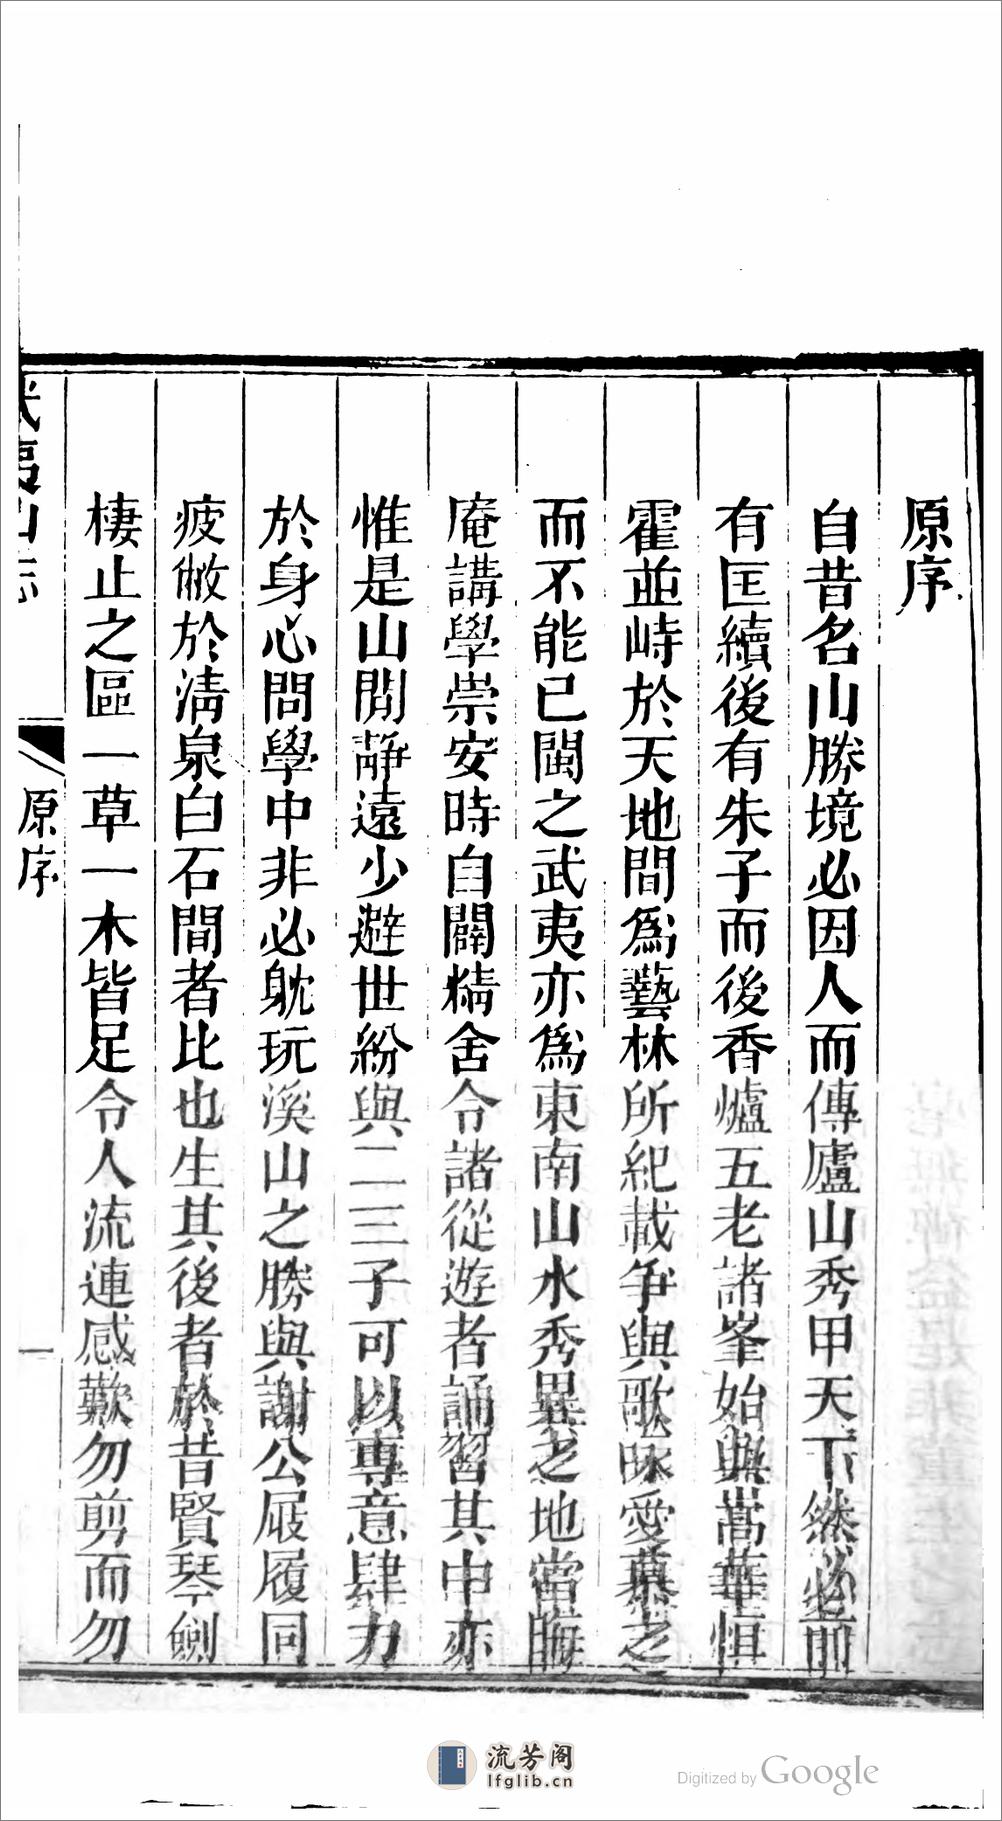 原序
自昔名山勝境必因人而傳廬山秀甲天下然必前
有匡續後有朱子而後香爐五老諸峯始與嵩華恒
霍並峙於天地間爲藝林所紀載爭與歌咏愛慕之
而不能已閩之武夷亦爲東南山水秀異之地當晦
庵講學崇安時自闢精舍令諸從遊者誦習其中亦
惟是山閒靜遠少避世紛與二三子可以專意肆力
於身心問學中非必躭玩溪山之勝與謝公屐履同
疲敝於清泉白石間者比也生其後者於昔賢琴劍
棲止之區一草一木皆足令人流連感歎勿剪而勿
武夷山志
原序
一
流芳阁
lfglib.cn
Digitized by Google